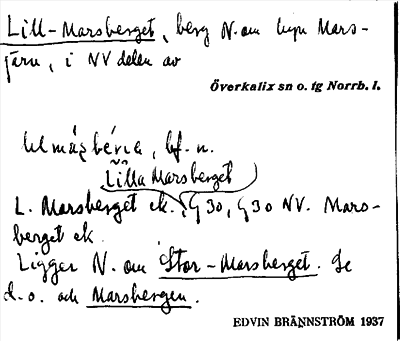 Lill-Marsberget, berg N. om byn Mars-
järv, i NV delen av
Överkalix sn o. tg Norrb. l.
bf. n.
Lilla Marsberget
L. Marsberget ek. 30, 30 NV. Mars-
berget ek.
Ligger N. om Stor-Marsberget. Se
d. o. och Marsbergen.
EDVIN BRÄNNSTRÖM 1937